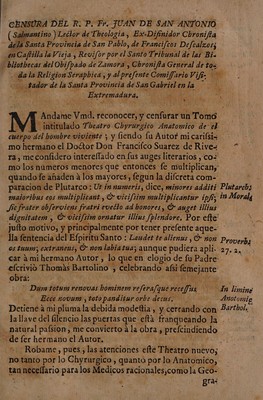 CENSURA DEL R. P. Fr. JUAN DE SAN ANTONIO
(Salmantino) Lector de Theologia, Ex-Difinidor Chronista
de la Santa Provincia de San Pablo, de Franciscos Descalzos,
en Castilla la Vieja, Revisor por el Santo Tribunal de las Bi-
bliothecas del Obispado de Zamora, Chronista General de to-
da la Religion Seraphica, y al presente Comissario Visi-
tador de la Santa Provincia de San Gabriel en la
Extremadura.
MAndame Vmd. reconocer, y censurar un Tomo
intitulado Theatro Chyrurgico Anatomico de el
cuerpo del hombre viviente; y siendo su Autor mi carissi-
mo hermano el Doctor Don Francisco Suarez de Rive-
ra, me considero interessado en sus auges literarios, co-
mo los numeros menores que entonces se multiplican,
quando se añaden à los mayores, segun la discreta com-
paracion de Plutarco: Ut in numeris, dice, minores additi
maioribus eos multiplicant, & vicissim multiplicantur ipsi;
sic frater observiens fratri evello ad honores, & auget illius
dignitatem, & vicissim ornatur illius splendore. Por este
justo motivo, y principalmente por tener presente aque-
lla sentencia del Espiritu Santo: Laudet te alienus, & non
os tuum; extraneus, & non labia tua; aunque pudiera apli-
car à mi hermano Autor, lo que en elogio de su Padre
escrivió Thomàs Bartholino, celebrando assi semejante
obra:
Dum totum renovas hominem reserasque recessus
Ecce novum, toto panditur orbe decus.
Detiene à mi pluma la debida modestia, y cerrando con
la llave del silencio las puertas que està franqueando la
natural passion, me convierto à la obra, prescindiendo
de ser hermano el Autor.
Robame, pues, las atenciones este Theatro nuevo,
no tanto por lo Chyrurgico, quanto por lo Anatomico,
tan necessario para los Medicos racionales, como la Geo-
gra-
Plutarch:
in Moral:
Proverb:
27. 2.
In limine
Anatomiæ
Barthol.